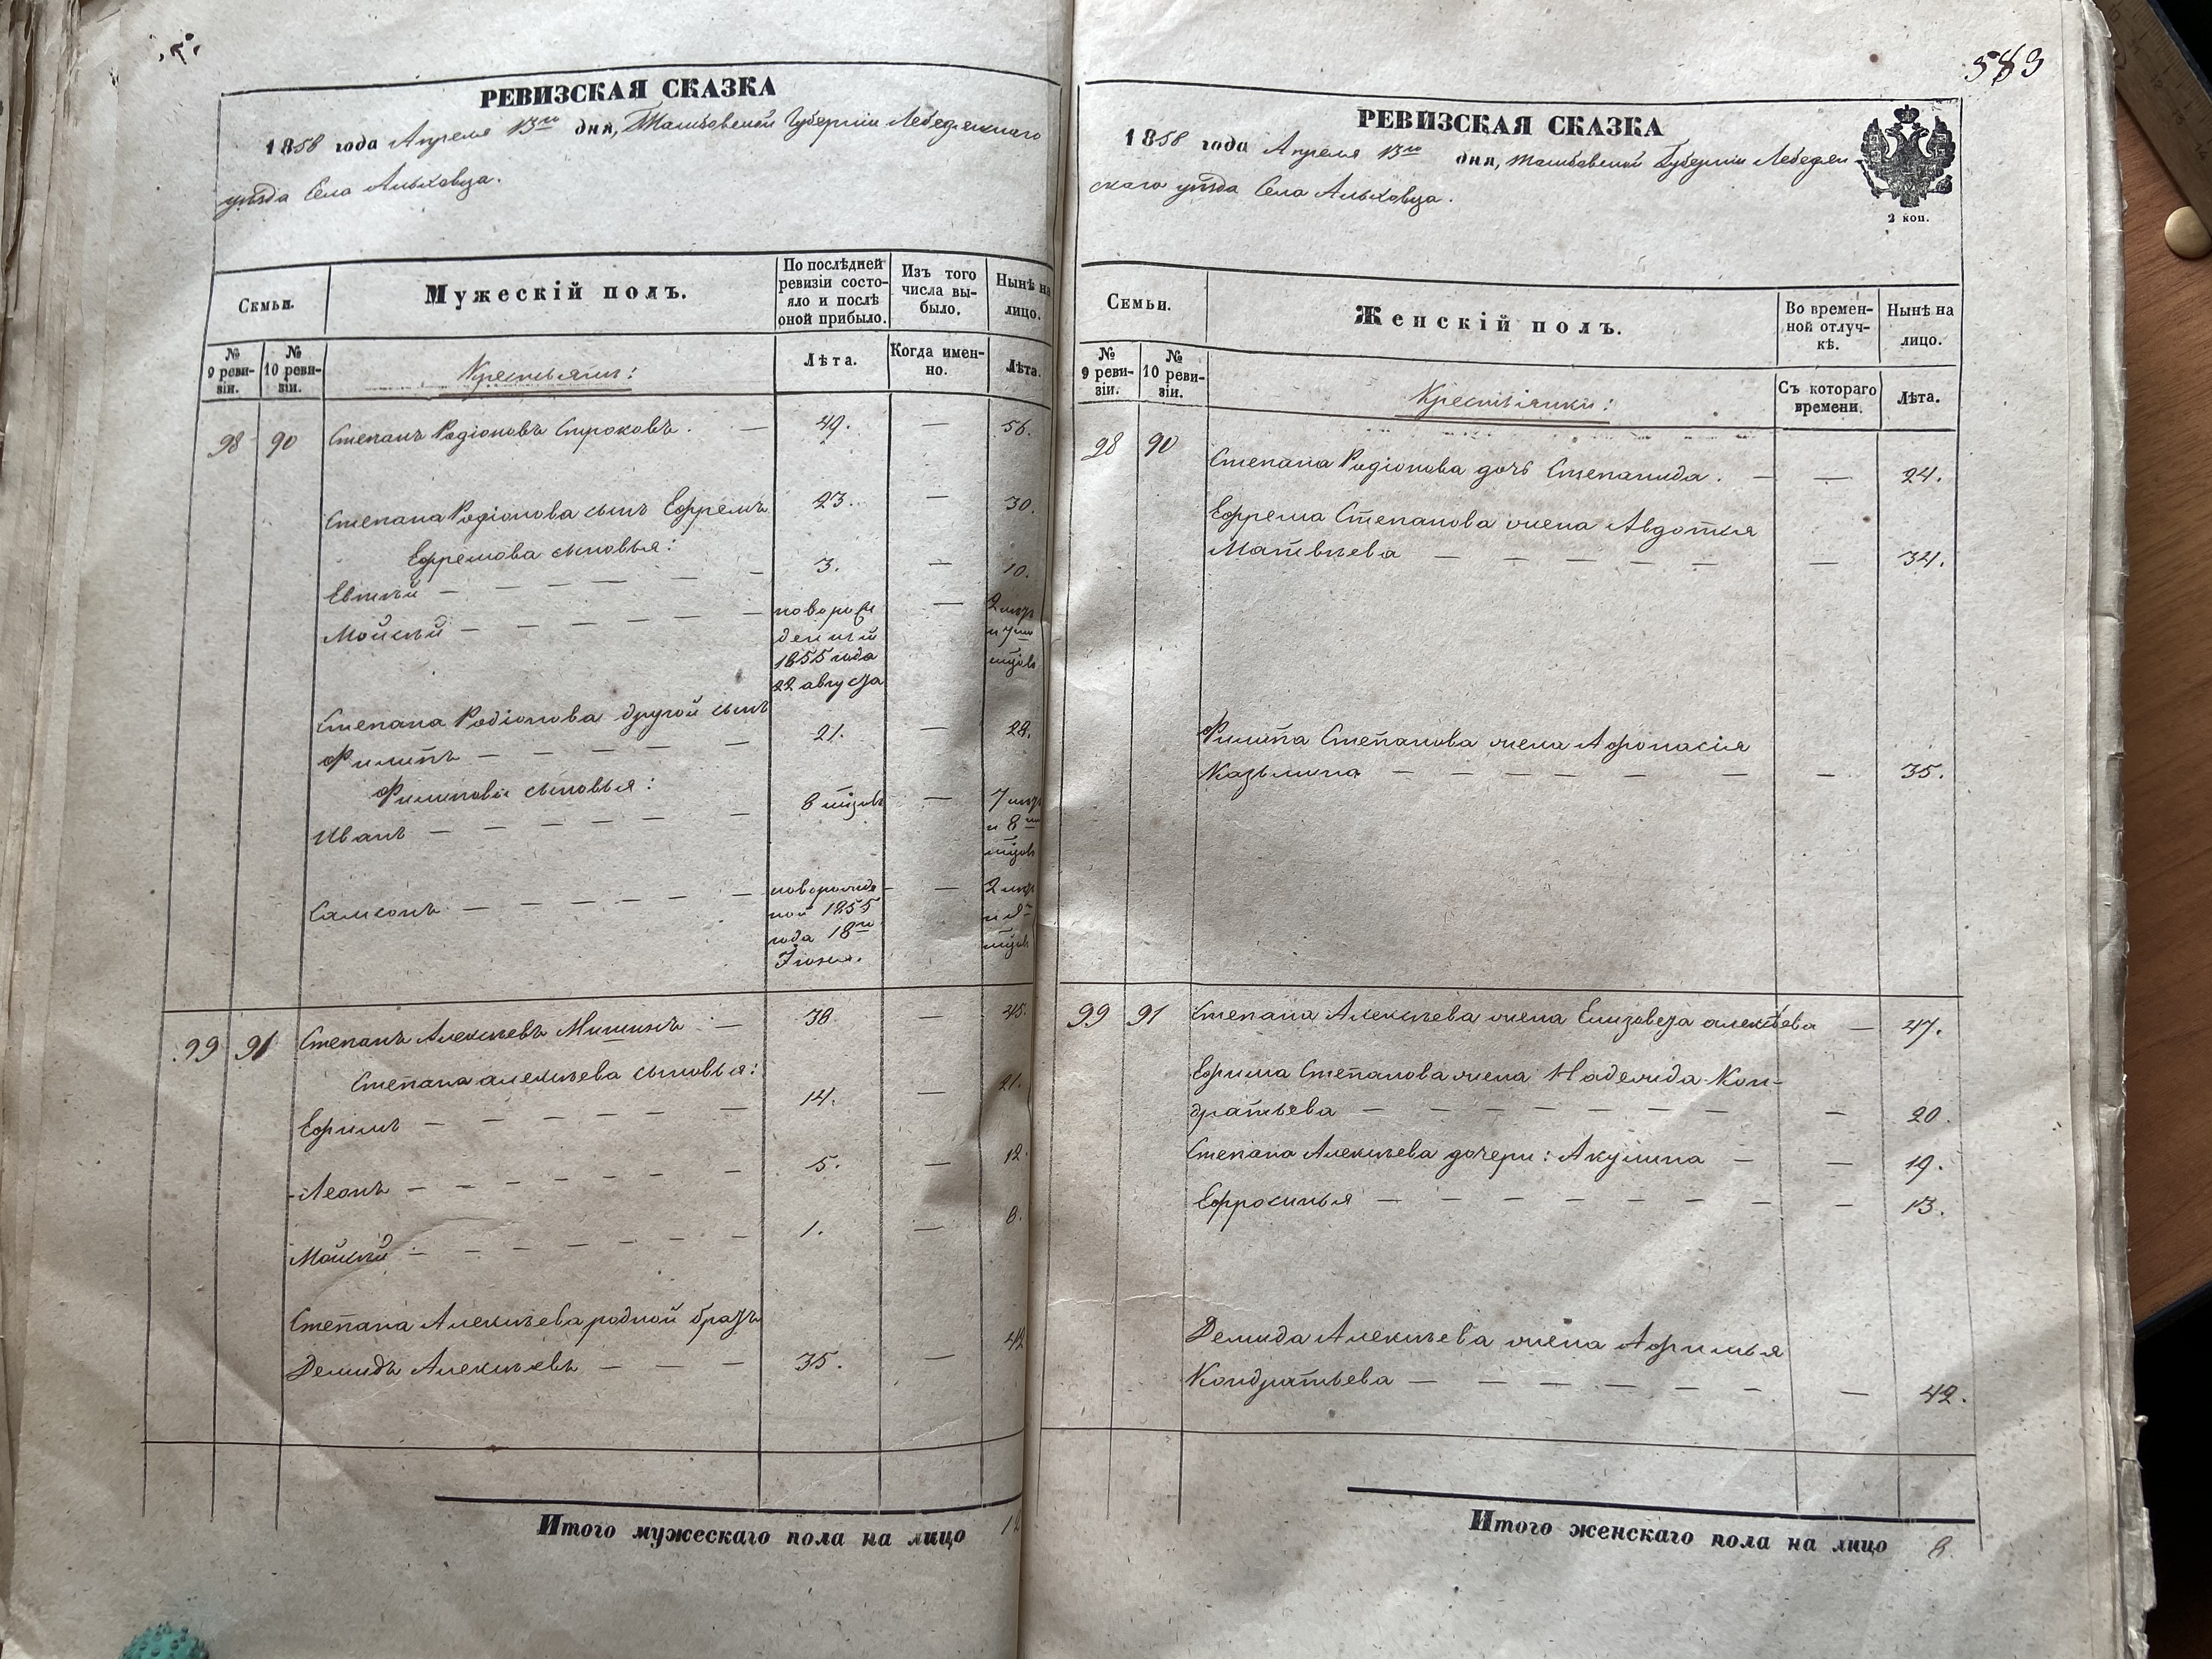 583
РЕВИЗСКАЯ СКАЗКА
1858 года Апреля 13го дня, Тамбовской Губерніи Лебедянскаго
уѣзда Села Альховца.
Семьи.
Мужескій полъ.
По послѣдней
ревизіи состо-
яло и послѣ
оной прибыло.
Изъ того
числа вы-
было.
Нынѣ на
лицо.
№
9 реви-
зіи.
№
10 реви-
зіи.
Крестьяне:
Лѣта.
Когда имен-
но.
Лѣта.
98 90 Степанъ Родіоновъ Строковъ. — 49. — 56.
Степана Родіонова сынъ Ефремъ 23. — 30.
Ефремова сыновья:
Евтѣй — — — — — — 3. — 10.
Мойсѣй — — — — — — новорож
денный
1855 года
22 августа
—
2 
и 7
Степана Родіонова другой сынъ
Филипъ — — — — — 21. — 28.
Филипова сыновья:
Иванъ — — — — — — 8 —
7
и 8
Самсонъ — — — — — —
ной 1855
года 18го
Іюня.
—
2
и
99 91 Степанъ Алексѣевъ Мишинъ — 38 — 45.
Степана алексѣева сыновья:
Ефимъ — — — — — 14. — 21.
Леонъ — — — — — — 5. — 12.
Мойсѣй — — — — — — 1. — 8.
Степана Алексѣева родной братъ
Демидъ Алексѣевъ — — — 35. — 42
Итого мужескаго пола на лицо
РЕВИЗСКАЯ СКАЗКА
1858 года Апреля 13го дня, Тамбовской Губерніи Лебедян-
скаго уѣзда Села Альховца.
2 коп.
Семьи.
Женскій полъ.
Во времен-
ной отлуч-
кѣ.
Нынѣ на
лицо.
№
9 реви-
зіи.
№
10 реви-
зіи.
Крестьянки:
Съ котораго
времени.
Лѣта.
98 90 Степана Родіонова дочь Степанида. — — 24.
Ефрема Степанова жена Авдотья
Матвѣева — — — — — — 34.
Филипа Степанова жена Афонасія
Казьмина — — — — — — — 35.
99 91 Степана Алексѣева жена Елизовета алексѣева — 47.
Ефима Степанова жена Надежда Кон-
дратьева — — — — — — — — 20.
Степана Алексѣева дочери: Акулина — — 19.
Ефросинья — — — — — — — — 13.
Демида Алексѣева жена Афимья
Кондратьева — — — — — — — 42.
Итого женскаго пола на лицо 8.